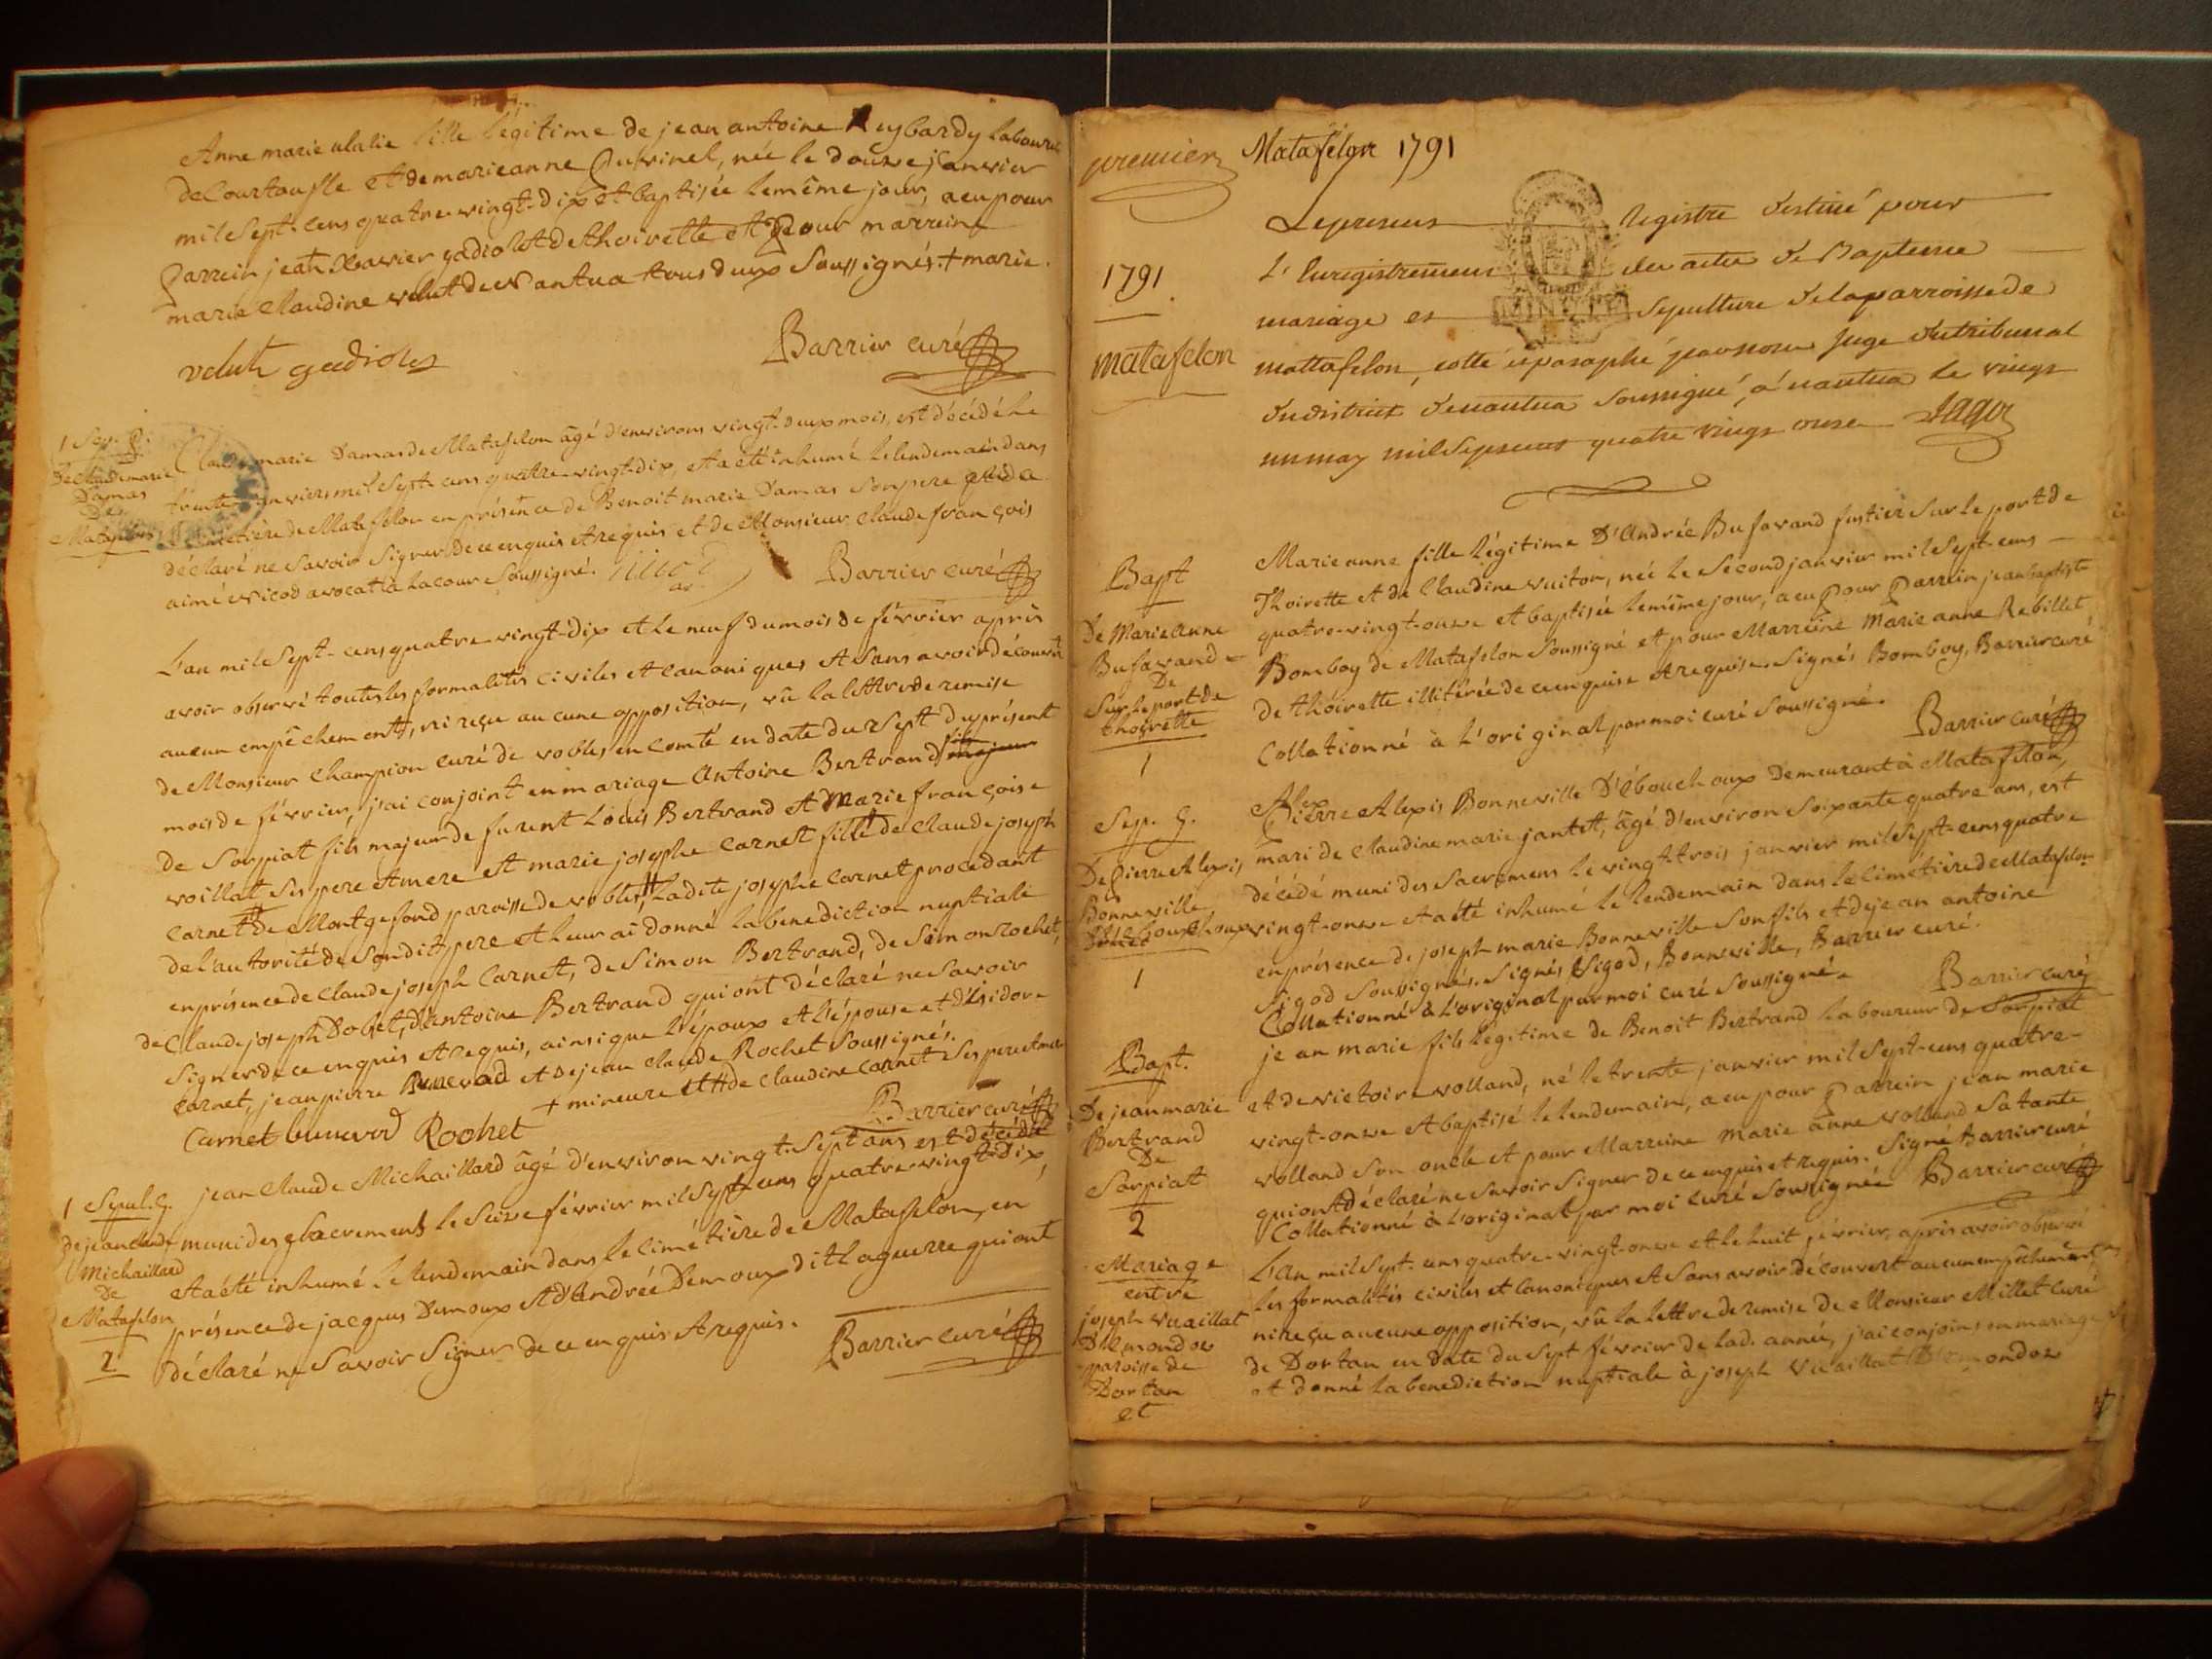 Anne marie ulalie fille légitime de jean antoine Reybardy laboureur
de Courtouphle et de marieanne Duvinel, née le douze janvier
mil Sept-cens quatre-vingt-dix et baptisée le même jour, a eu pour
parrein jean Xavier gadiolet de thoirette et pour marreine
marie Claudine velut de Nantua tous deux Soussignés. + marie.
velut gadiolet
Barrier curé
1 Sep. P.
De Claude marie
Damas
De
Matafelon
Claude marie Damas de Matafelon âgé d'environs vingt-deux mois, est décédé le
trente janvier mil Sept cens quatre-vingt-dix, et a été inhumé le lendemain dans
le cimetière de Matafelon en présence de Benoit marie Damas Son pere qui a
déclaré ne Savoir Signer de ce enquis et requis et de Monsieur Claude françois
aimé Nicod avocat à la cour Soussigné.
Barrier curé
L'an mil Sept-cens quatre-vingt-dix et le neuf du mois de février après
avoir observé toutes les formalités civiles et canoniques et Sans avoir découvert
aucun empêchement, ni reçu aucune opposition, vû la lettre de remise
de Monsieur Champion curé de vobles en Comté en date du sept du présent
mois de février, j'ai conjoint en mariage Antoine Bertrand fils majeur
de Sorpiat fils majeur de furent Louis Bertrand et Marie françoise
voillat Ses pere et mere et marie josephe Carnet fille de Claude joseph
Carnet de Montgefond paroisse de vobles, # Ladite josephe Carnet procedant
de l'autorité de Son dit pere et leur ai donné la benediction nuptiale
en présence de Claude joseph Carnet, de Simon Bertrand, de Simon Rochet,
de Claude joseph Dohet, d'antoine Bertrand qui ont déclaré ne Savoir
Signer de ce enquis et requis, ainsi que l'époux et l'épouse et d'Isidore
Carnet, jean pierre Benevod et de jean Claude Rochet Soussignés.
+ mineure et # de Claudine Carnet Ses pere et mere
Carnet benevod Rochet
Barrier curé
1 Sepul. G.
de jean Claude
Michaillard
De
Matafelon
2
jean Claude Michaillard âgé d'environ vingt-Sept ans est décédé
muni des Sacremens le Seize février mil Sept-cens quatre-vingt-dix,
et a été inhumé le lendemain dans le cimétière de Matafelon, en
présence de jacques Demoux et d'Andrée Demoux dit Laguerre qui ont
déclaré ne Savoir Signer de ce enquis et requis.
Barrier curé
premier
Matafelon 1791
1791
matafelon
Le present registre destiné pour
l'Enregistrement des actes de Bapteme
mariage et Sepulture de la parroisse de
mattafelon, cotté et paraphé par nous Juge du tribunal
du district de nantua soussigné, a nantua le vingt
un may mil Sept cent quatre vingt onze
Bapt
De Marie Anne
Bufavand
De
Sur le port de
thoirette
1
Marie anne fille légitime D'Andrée Bufavand fustier Sur le port de
Thoirette et de Claudine vuiton, née le Second janvier mil Sept-cens
quatre-vingt-onze et baptisée le même jour, a eu pour parrein jean baptiste
Bomboy de Matafelon Soussigné et pour Marreine Marie anne Rebillet
de thoirette illitérée de ce enquise et requise. Signés Bomboy, Barrier curé
Collationné à l'original par moi curé Soussigné.
Barrier curé
Sep. G.
De pierre Alexis
Bonneville
D'Ebouchoux
1
Pierre Alexis Bonneville D'Ebouchoux Demeurant à Matafelon,
mari de Claudine marie jantet, âgé d'environ Soixante quatre ans, est
décédé muni des Sacremens le vingt trois janvier mil Sept-cens quatre
vingt-onze et a été inhumé le lendemain dans le cimetière de Matafelon
en présence de joseph marie Bonneville Son fils et de jean antoine
Sigod Soussignés. Signés, Sigod, Bonneville, Barrier curé.
Collationné à l'original par moi curé Soussigné.
Barrier curé
Bapt.
De jean marie
Bertrand
De
Sorpiat
2
jean marie fils légitime de Benoit Bertrand laboureur de Sorpiat
et de victoire volland, né le trente janvier mil Sept-cens quatre-
vingt-onze et baptisé le lendemain, a eu pour Parrein jean marie
volland Son oncle et pour Marreine Marie anne volland Sa tante
qui ont déclaré ne Savoir Signer de ce enquis et requis. Signé Barrier curé
Collationné à l'original par moi curé Soussigné
Barrier curé
Mariage
entre
joseph Vuaillat
D'Emondoz
paroisse de
Dortan
et
L'an mil Sept-cens quatre-vingt-onze et le huit février, après avoir observé
les formalités civiles et canoniques et Sans avoir découvert aucun empêchement,
ni reçu aucune opposition, vû la lettre de remise de Monsieur Millet curé
de Dortan en date du Sept février de lad. année, j'ai conjoint en mariage
et donné la benediction nuptiale à joseph Vuaillat D'Emondoz